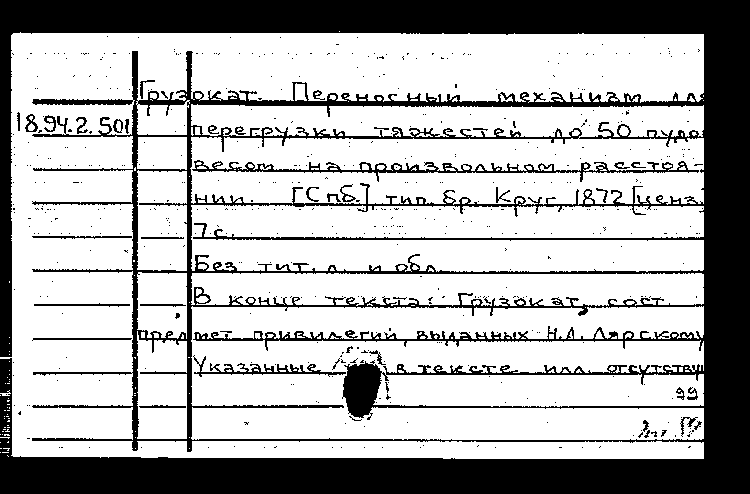 Грузокат. Переносный механизм для
18.94.2.501 перегрузки тяжестей до 50 пудо
весом на произвольном расстоя-
нии. [Спб.], тип. бр. Круг, 1872 [ценз.]
7 с.
Без тит. л. и обл.
В конце текста: Грузокат, сост.
предмет привилегий, выданных Н.А. Лярскому
Указанные в тексте илл. отсутствую
99